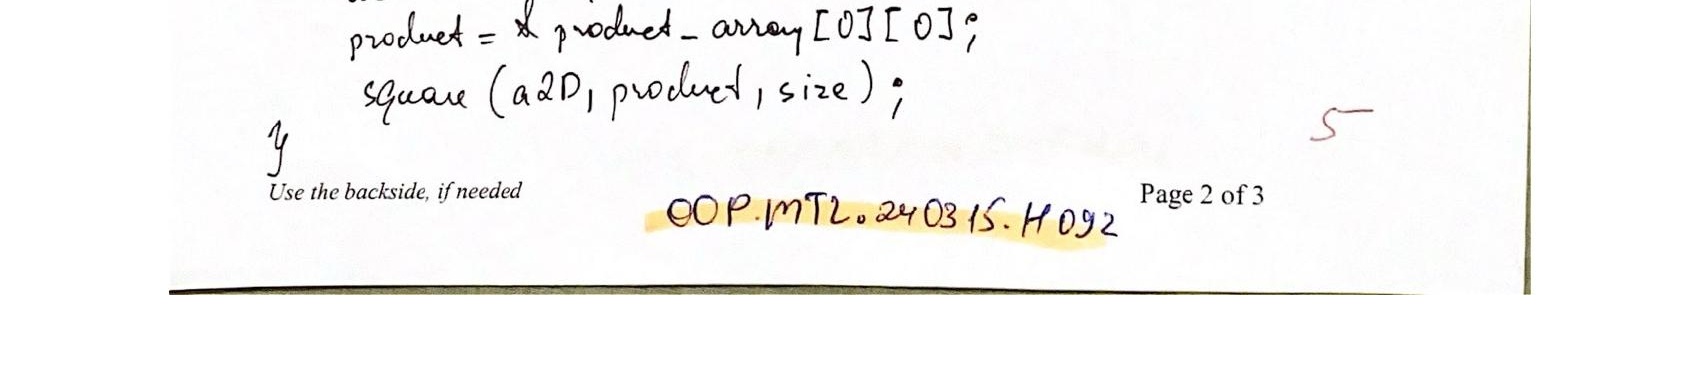 product = & product_array[0][0];
square (a2D, product, size);
}
5
Use the backside, if needed
Page 2 of 3
OOP.MT2.240315.H092